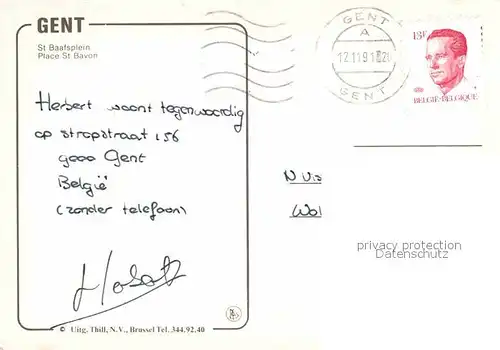 GENT
St Baafsplein
Place St Bavon
Herbert woont tegenwoordig
op stropstraat 156
9000 Gent
België
(zonder telefoon)
© Uitg. Thill, N.V., Brussel Tel. 344.92.40
GENT
A
12 11 91
GENT
13F
BELGIË-BELGIQUE
privacy protection
Datenschutz